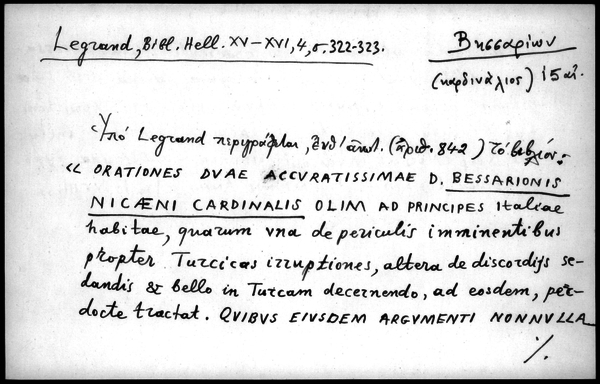 Legrand, Βιβλ. Hell. XV–XVI, 4, σ. 322-323.
Βησσαρίων
(καρδινάλιος) 15 αἰ.
Ὑπό Legrand περιγράφεται, ἐνθ' ἀνωτ. (ἀριθ. 842) τό βιβλίον:
« ORATIONES DVAE ACCVRATISSIMAE D. BESSARIONIS
NICÆNI CARDINALIS OLIM AD PRINCIPES Italiae
habitae, quarum vna de periculis imminentibus
propter Turcicas irruptiones, altera de discordijs se-
dandis & bello in Turcam decernendo, ad eosdem, per-
docte tractat. QVIBVS EIVSDEM ARGVMENTI NONNVLLA
./.